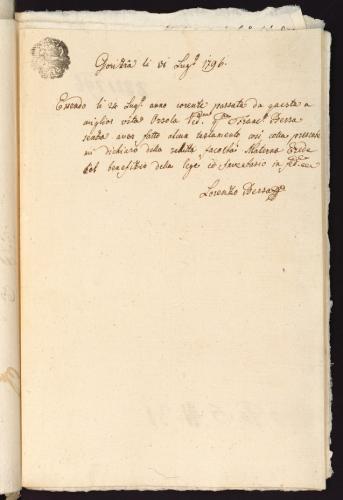 Gorizia li 31 Lug.o 1796.
Essendo li 24 Lug.o anno corente passata da questa a
miglior vita Orsola Ved.va q.m Franc.o Bersa
senza aver fatto alcun testamento così colla presente
mi dichiaro della redita facoltà Materna Erede
col benefizio della lege et Inventario in fede
Lorenzo Bersa